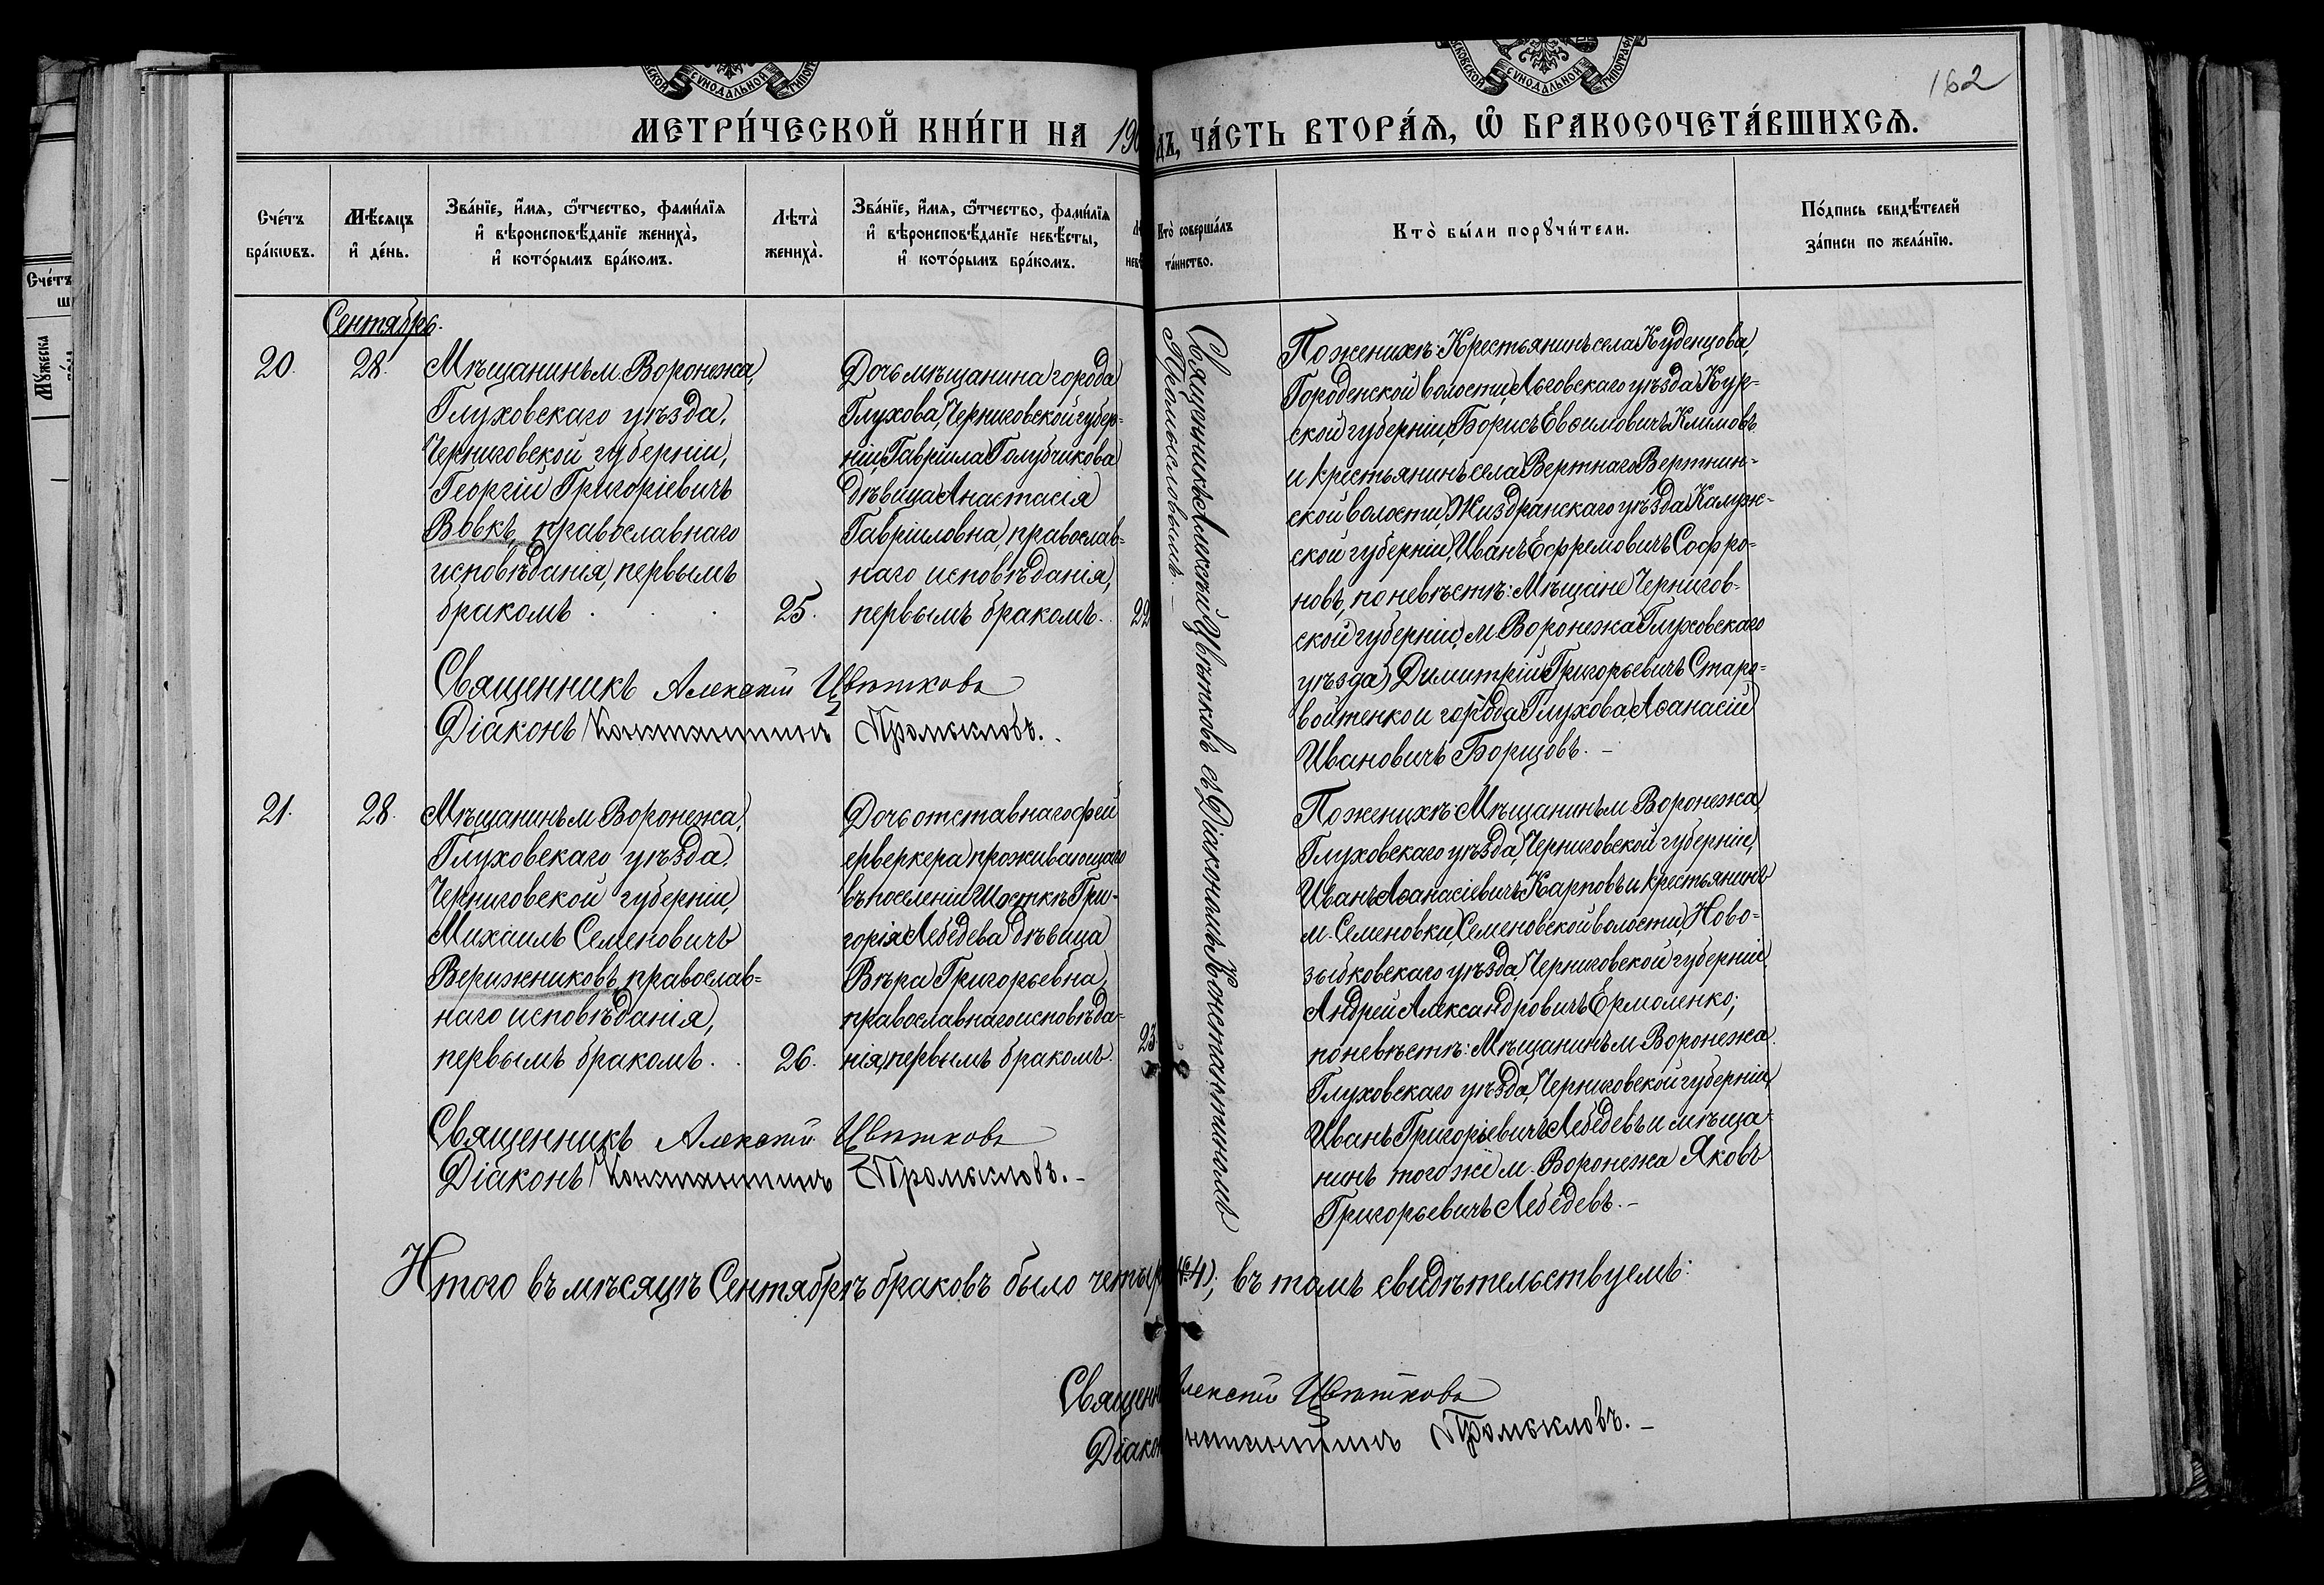 СѴНОДАЛЬНОЙ
СѴНОДАЛЬНОЙ ТИПОГРАФ
162
МЕТРИ́ЧЕСКОЙ КНИ́ГИ НА 190
дъ, ЧА́СТЬ ВТОРА́Ѧ, Ѡ҆ БРАКОСОЧЕТА́ВШИХСѦ.
Сче́тъ
бра́кѡвъ.
Мѣ́сѧцъ
и҆ де́нь.
Зва́нїе, и҆́мѧ, ѻ҆́тчество, фами́лїѧ
и҆ вѣроисповѣ́данїе жениха̀,
и҆ кото́рымъ бра́комъ.
Лѣта̀
жениха̀.
Зва́нїе, и҆́мѧ, ѻ҆́тчество, фами́лїѧ
и҆ вѣроисповѣ́данїе невѣ́сты,
и҆ кото́рымъ бра́комъ.
Кто̀ соверша́лъ
та́инство.
Кто̀ бы́ли порꙋчи́тели.
По́дпись свидѣ́телей
за́писи по жела́нїю.
Счетъ
Мꙋжеска
Сентябрь.
20.
28.
Мѣщанинъ м. Воронежа,
Глуховскаго уѣзда,
Черниговской губерніи,
Георгій Григоріевичъ
Вовкъ, православнаго
исповѣданія, первымъ
бракомъ.
25.
Дочь мѣщанина города
Глухова, Черниговской губер-
ніи, Гавріила Голубчикова
дѣвица Анастасія
Гавріиловна, православ-
наго исповѣданія,
первымъ бракомъ.
22
Священникъ Алексѣй Цвѣтковъ съ Діакономъ Константиномъ
Промысловымъ. –
По женихѣ: Крестьянинъ села Куденцова,
Городенской волости, Льговскаго уѣзда Кур-
ской губерніи, Борисъ Евѳимовичъ Климовъ
и крестьянинъ села Вертнаго Вертнин-
ской волости, Жиздринскаго уѣзда Калуж-
ской губерніи, Иванъ Ефремовичъ Софро-
новъ, по невѣстѣ: Мѣщане Чернигов-
ской губерніи, м. Воронежа Глуховскаго
уѣзда, Димитрій Григорьевичъ Старо-
войтенко и города Глухова Аѳанасій
Ивановичъ Борщовъ. –
Священникъ Алексѣй Цвѣтковъ
Діаконъ Константинъ Промысловъ.
21.
28.
Мѣщанинъ м Воронежа,
Глуховскаго уѣзда.
Черниговской губерніи,
Михаилъ Семеновичъ
Верижниковъ, православ-
наго исповѣданія,
первымъ бракомъ.
26.
Дочь отставнаго фей
ерверкера проживающаго
въ поселеніи Шосткѣ Гри-
горія Лебедева дѣвица
Вѣра Григорьевна,
православнаго исповѣда-
нія, первымъ бракомъ.
23.
По женихѣ: Мѣщанинъ м Воронежа,
Глуховскаго уѣзда, Черниговской губерніи,
Иванъ Аѳанасіевичъ Карповъ и крестьянинъ
м. Семеновки, Семеновской волости, Ново-
зыбковскаго уѣзда Черниговской губерніи,
Андрей Александровичъ Ермоленко;
по невѣстѣ: Мѣщанинъ м. Воронежа.
Глуховскаго уѣзда, Черниговской губерніи,
Иванъ Григоріевичъ Лебедевъ и мѣща-
нинъ того же м. Воронежа Яковъ
Григорьевичъ Лебедевъ. –
Священникъ Алексѣй Цвѣтковъ
Діаконъ Константинъ Промысловъ. –
Итого въ мѣсяцѣ Сентябрѣ браковъ было четыр (№4); въ томъ свидѣтельствуемъ:
Священн Алексѣй Цвѣтковъ
Діакон нстантинъ Промысловъ. –